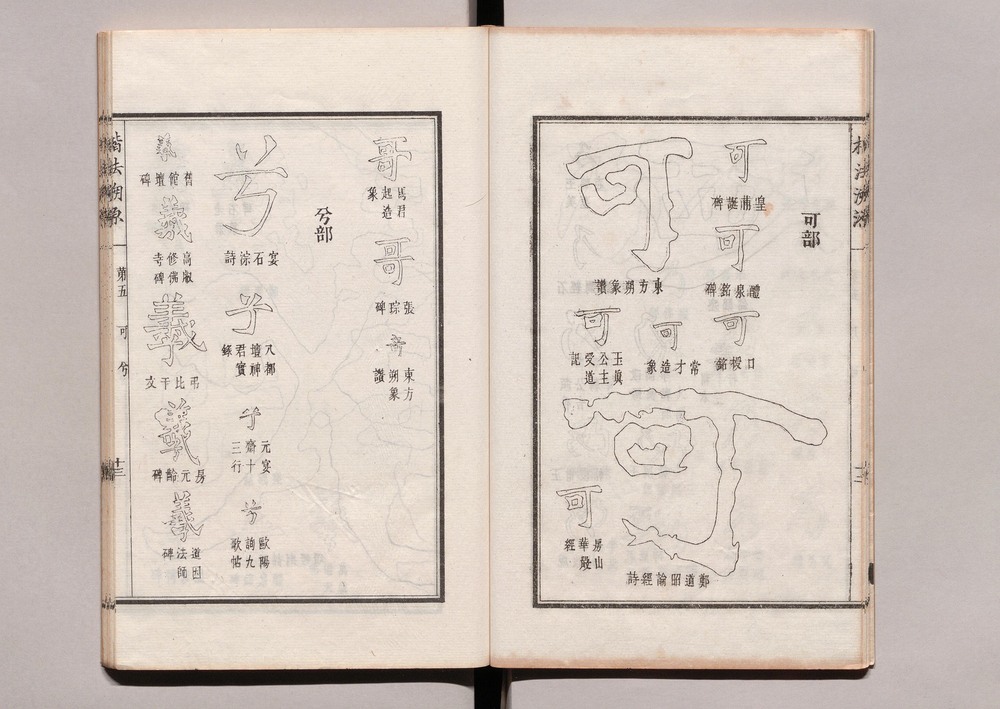 可部
可
皇甫誕碑
可
醴泉銘碑
可
可
東方朔象讚
可
常才造象
可
可
鄭道昭論經詩
可
山華嚴經
哥
馬君起造象
哥
張琮碑
哥
東方朔象讚
兮部
兮
宴石淙詩
兮
八都壇神君實錄
兮
元宴齋十三行
兮
歐陽詢九歌帖
羲
舊館壇碑
羲
高叡修佛寺碑
羲
弔比干文
羲
房元齡碑
羲
道因法師碑
楷法溯源
第五 可 兮
十三